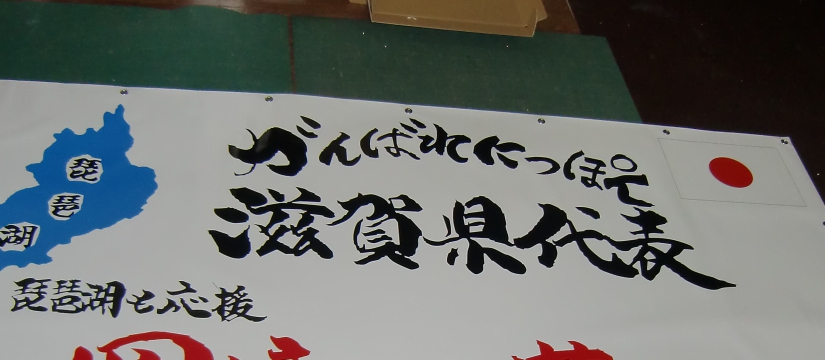 がんばれにっぽて
滋賀県代表
琵
琶
湖
琵琶湖と応援